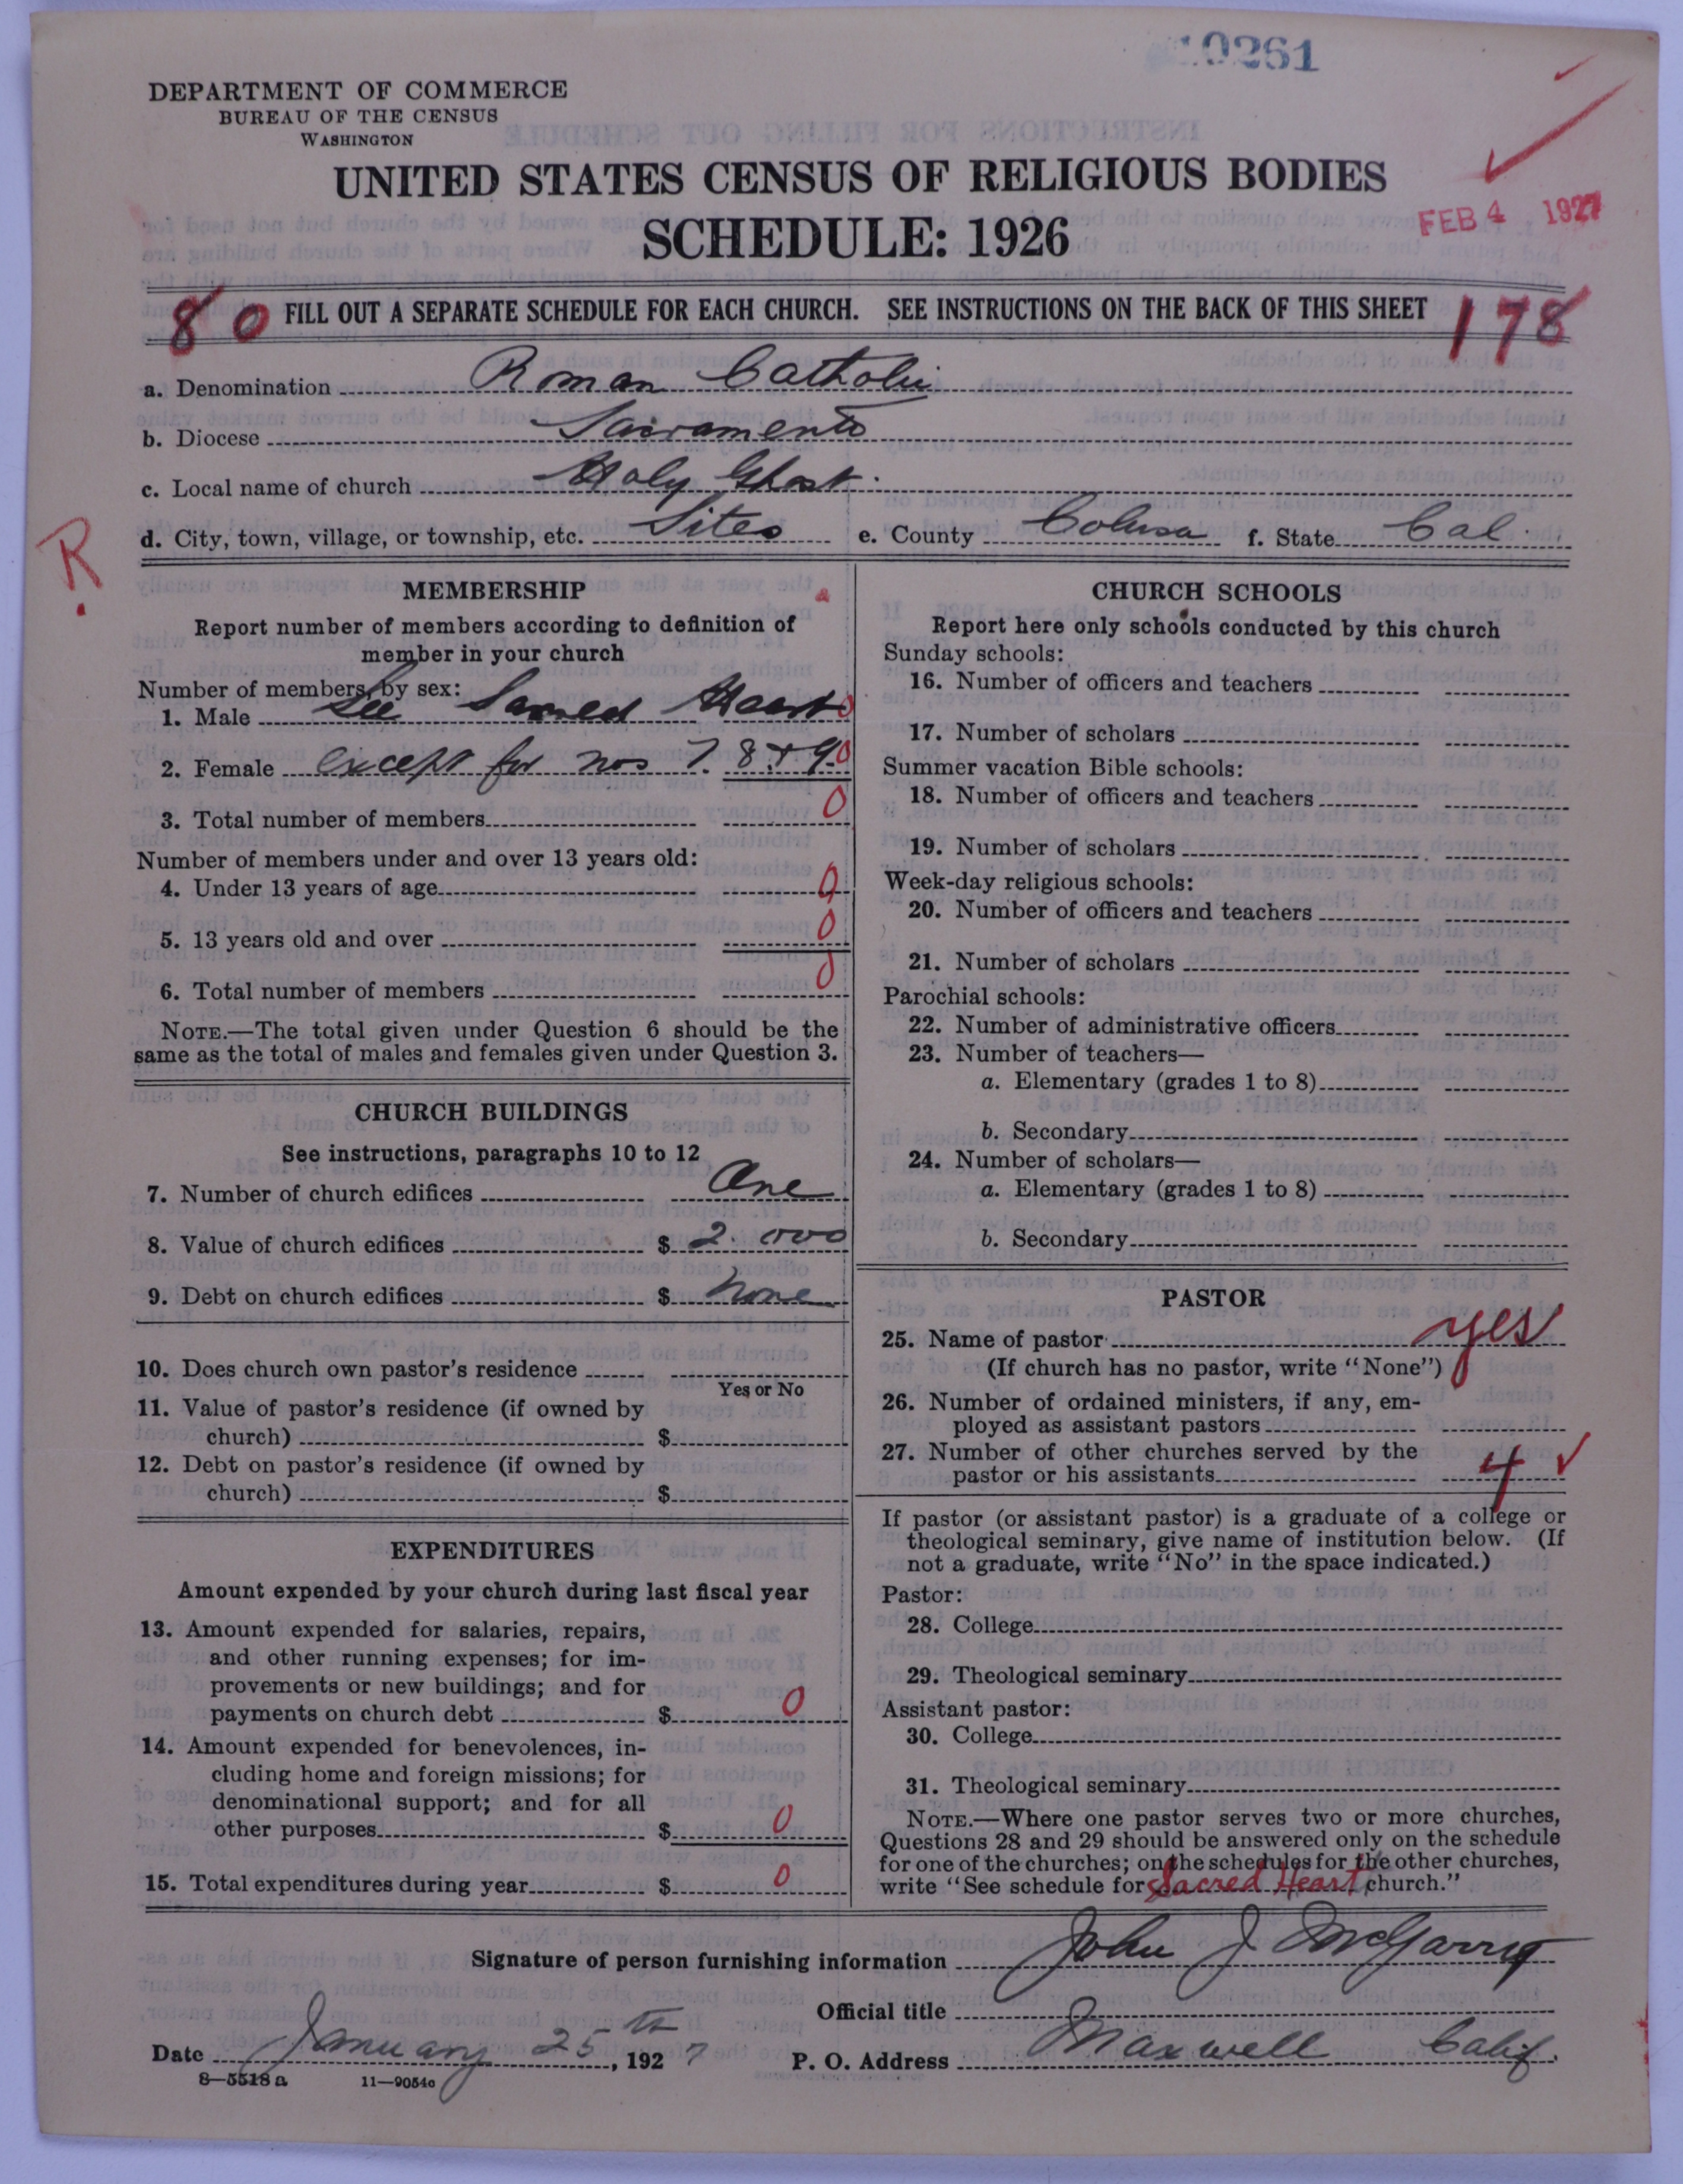 0261
DEPARTMENT OF COMMERCE
BUREAU OF THE CENSUS
WASHINGTON
UNITED STATES CENSUS OF RELIGIOUS BODIES
SCHEDULE: 1926
FEB 4 1927
80 FILL OUT A SEPARATE SCHEDULE FOR EACH CHURCH. SEE INSTRUCTIONS ON THE BACK OF THIS SHEET 178
a. Denomination Roman Catholic
b. Diocese Sacramento
c. Local name of church Holy Ghost
d. City, town, village, or township, etc. Sites e. County Colusa f. State Cal
R
MEMBERSHIP
Report number of members according to definition of
member in your church
Number of members by sex:
1. Male See Sacred Heart 0
2. Female except for nos 7. 8 + 9. 0
3. Total number of members 0
Number of members under and over 13 years old:
4. Under 13 years of age 0
5. 13 years old and over 0
6. Total number of members 0
NOTE.—The total given under Question 6 should be the
same as the total of males and females given under Question 3.
CHURCH BUILDINGS
See instructions, paragraphs 10 to 12
7. Number of church edifices One
8. Value of church edifices $ 2.000
9. Debt on church edifices $ None
10. Does church own pastor's residence
Yes or No
11. Value of pastor's residence (if owned by
church) $
12. Debt on pastor's residence (if owned by
church) $
EXPENDITURES
Amount expended by your church during last fiscal year
13. Amount expended for salaries, repairs,
and other running expenses; for im-
provements or new buildings; and for
payments on church debt $ 0
14. Amount expended for benevolences, in-
cluding home and foreign missions; for
denominational support; and for all
other purposes $ 0
15. Total expenditures during year $ 0
CHURCH SCHOOLS
Report here only schools conducted by this church
Sunday schools:
16. Number of officers and teachers
17. Number of scholars
Summer vacation Bible schools:
18. Number of officers and teachers
19. Number of scholars
Week-day religious schools:
20. Number of officers and teachers
21. Number of scholars
Parochial schools:
22. Number of administrative officers
23. Number of teachers—
a. Elementary (grades 1 to 8)
b. Secondary
24. Number of scholars—
a. Elementary (grades 1 to 8)
b. Secondary
PASTOR
25. Name of pastor yes
(If church has no pastor, write "None")
26. Number of ordained ministers, if any, em-
ployed as assistant pastors
27. Number of other churches served by the
pastor or his assistants 4 ✓
If pastor (or assistant pastor) is a graduate of a college or
theological seminary, give name of institution below. (If
not a graduate, write "No" in the space indicated.)
Pastor:
28. College
29. Theological seminary
Assistant pastor:
30. College
31. Theological seminary
NOTE.—Where one pastor serves two or more churches,
Questions 28 and 29 should be answered only on the schedule
for one of the churches; on the schedules for the other churches,
write "See schedule for Sacred Heart church."
Signature of person furnishing information John J McGarry
Official title
Date January 25th, 1927 P. O. Address Maxwell Calif.
8—5518a 11—9054o